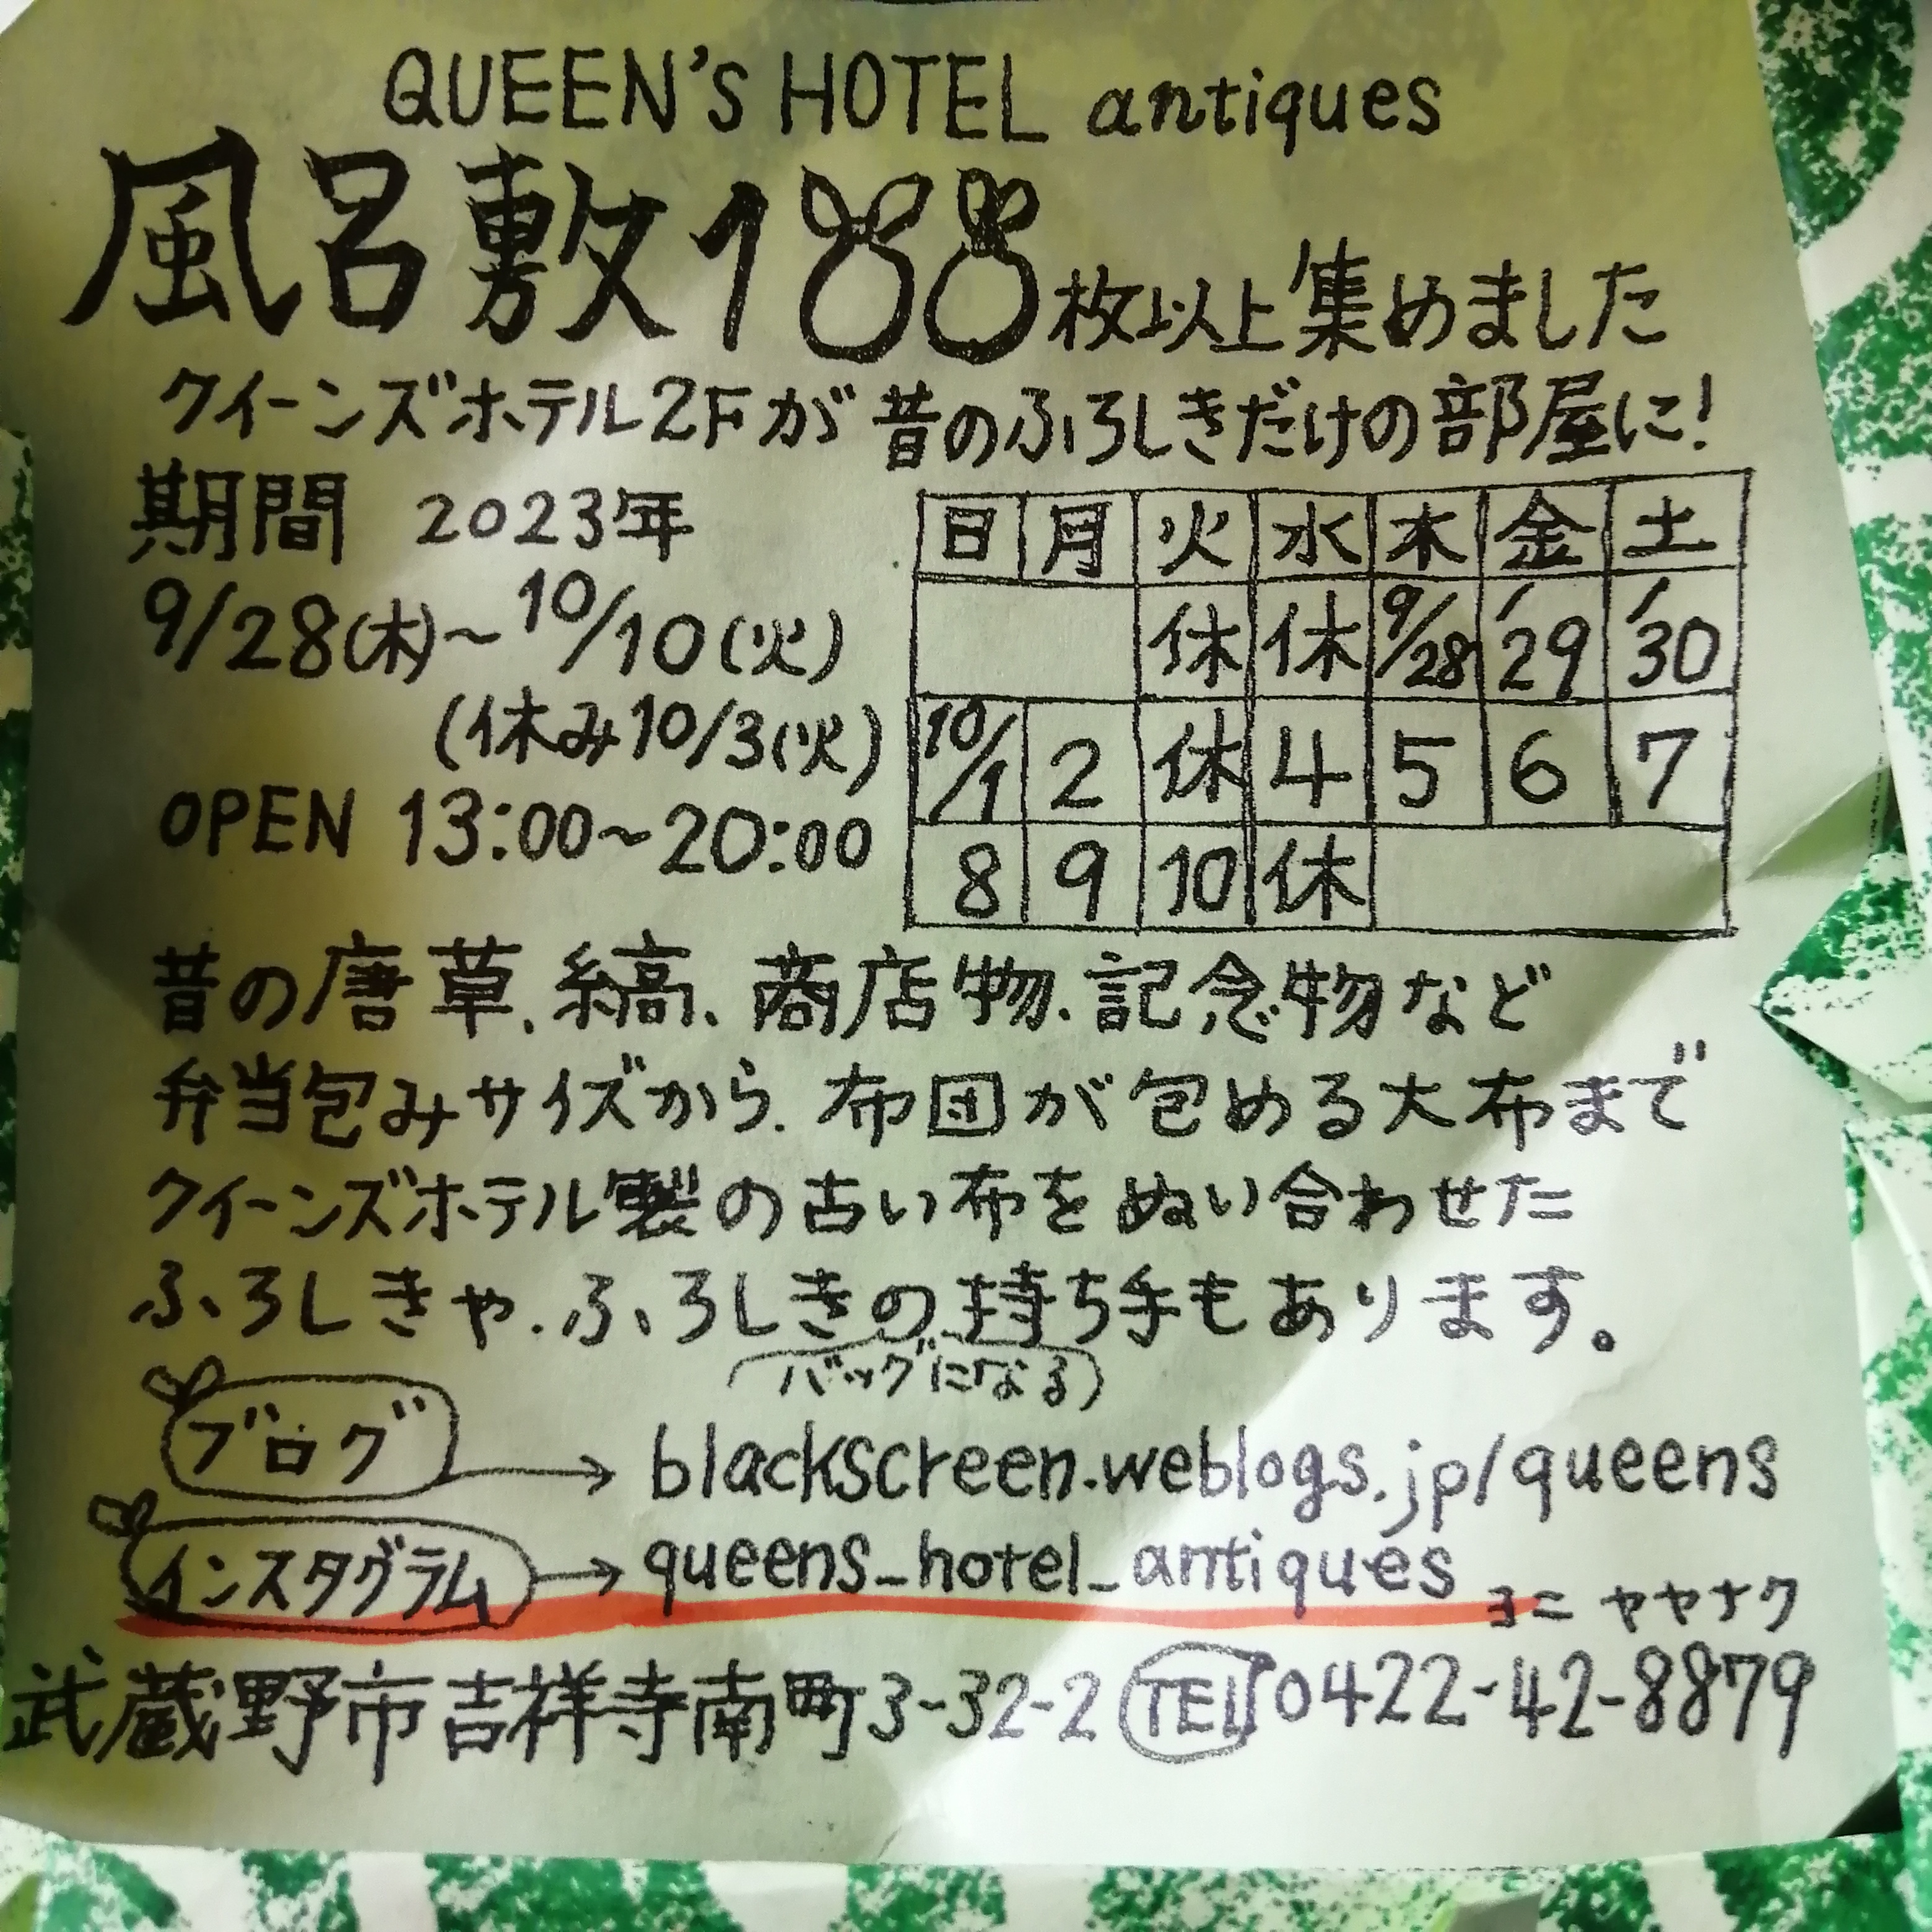 QUEEN'S HOTEL antiques
風呂敷100枚以上集めました
クイーンズホテル2Fが昔のふろしきだけの部屋に!
期間 2023年
9/28(木)～10/10(火)
(休み10/3(火)
OPEN 13:00～20:00
日 月 火 水 木 金 土
休 休 9/28 /29 /30
10/1 2 休 4 5 6 7
8 9 10 休
昔の唐草、縞、商店物、記念物など
弁当包みサイズから、布団が包める大布まで
クイーンズホテル製の古い布をぬい合わせた
ふろしきや、ふろしきの持ち手もあります。
(バッグになる)
ブログ→blackscreen.weblogs.jp/queens
インスタグラム→queens_hotel_antiques
ヨニ ヤヤナク
武蔵野市吉祥寺南町3-32-2 TEL 0422-42-8879